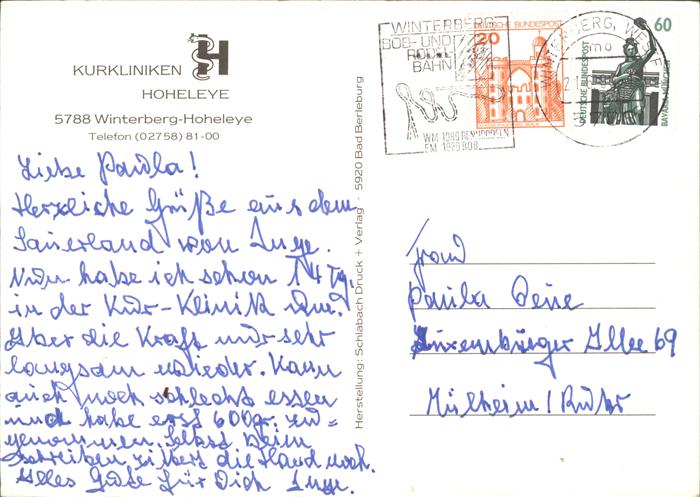 KURKLINIKEN
HOHELEYE
5788 Winterberg-Hoheleye
Telefon (02758) 81-00
Liebe Paula!
Herzliche Grüße aus dem
Sauerland von Inge.
Nun habe ich schon 14 Tg.
in der Kur-Klinik um.
Aber die Kraft nur sehr
langsam wieder. Kann
auch noch schlecht essen
und habe erst 600gr. zu=
genommen. Selbst beim
schreiben zittert die Hand noch.
Alles Gute für Dich Inge.
Herstellung: Schlabach Druck + Verlag · 5920 Bad Berleburg
WINTERBERG
BOB- UND
RODEL
BAHN
WM 1989
EM 1989 BOB
DEUTSCHE BUNDESPOST
20
WINTERBERG, WESTF
DEUTSCHE BUNDESPOST
60
BAVARIA MÜNCHEN
Frau
Paula
Luxemburger Allee 69
Mülheim / Ruhr